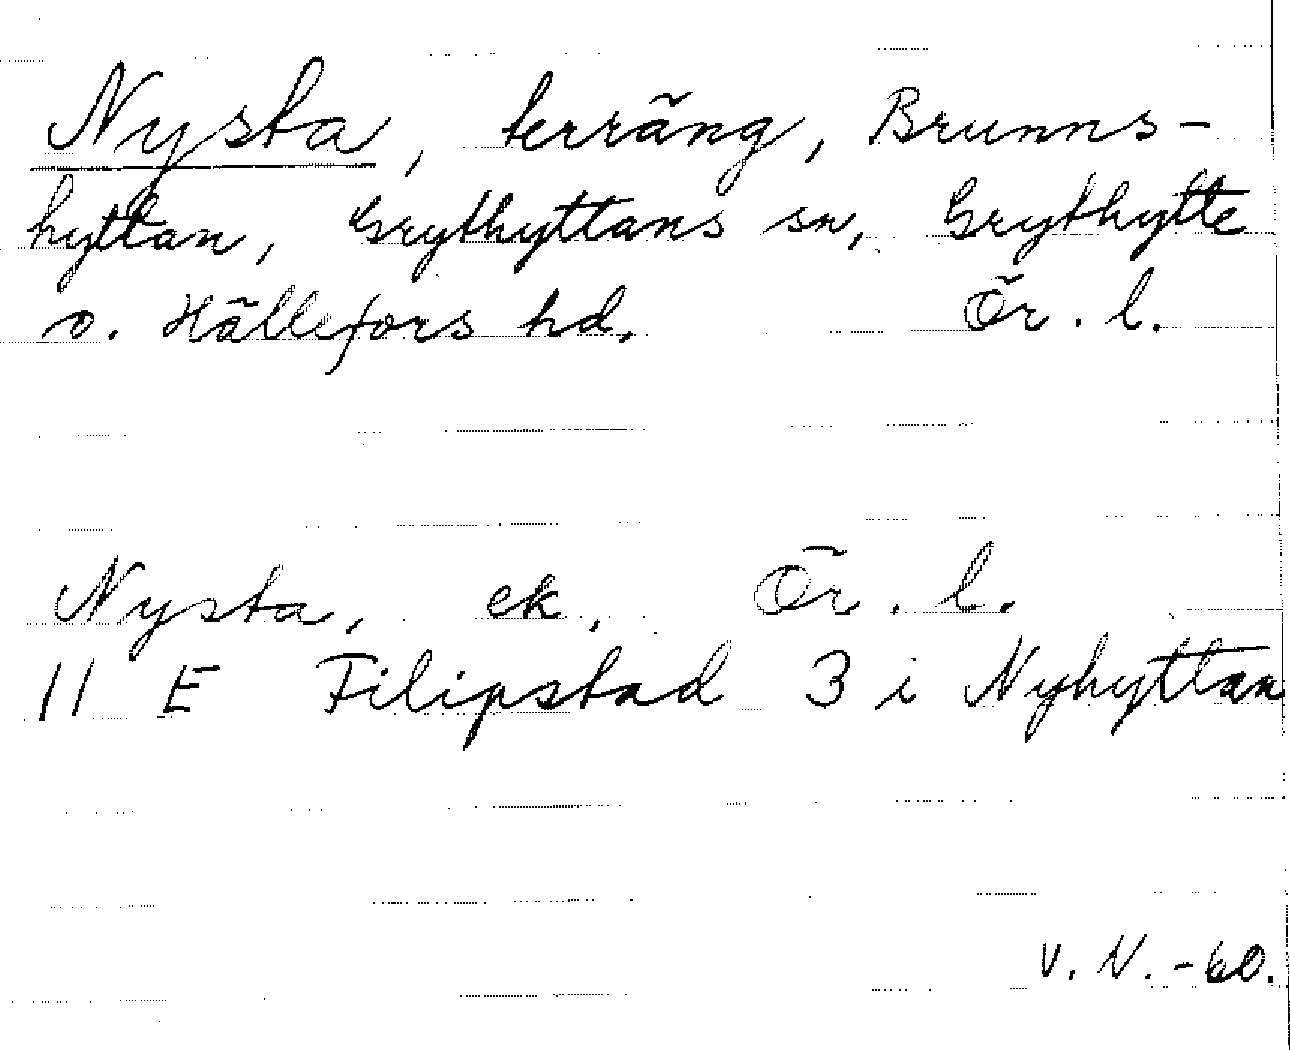 Nysta, terräng, Brunns-
hyttan, Grythyttans sn, Grythytte
o. Hällefors hd. Ör. l.
Nysta, ek. Ör. l.
11 E Filipstad 3 i Nyhyttan
V. N. -60.